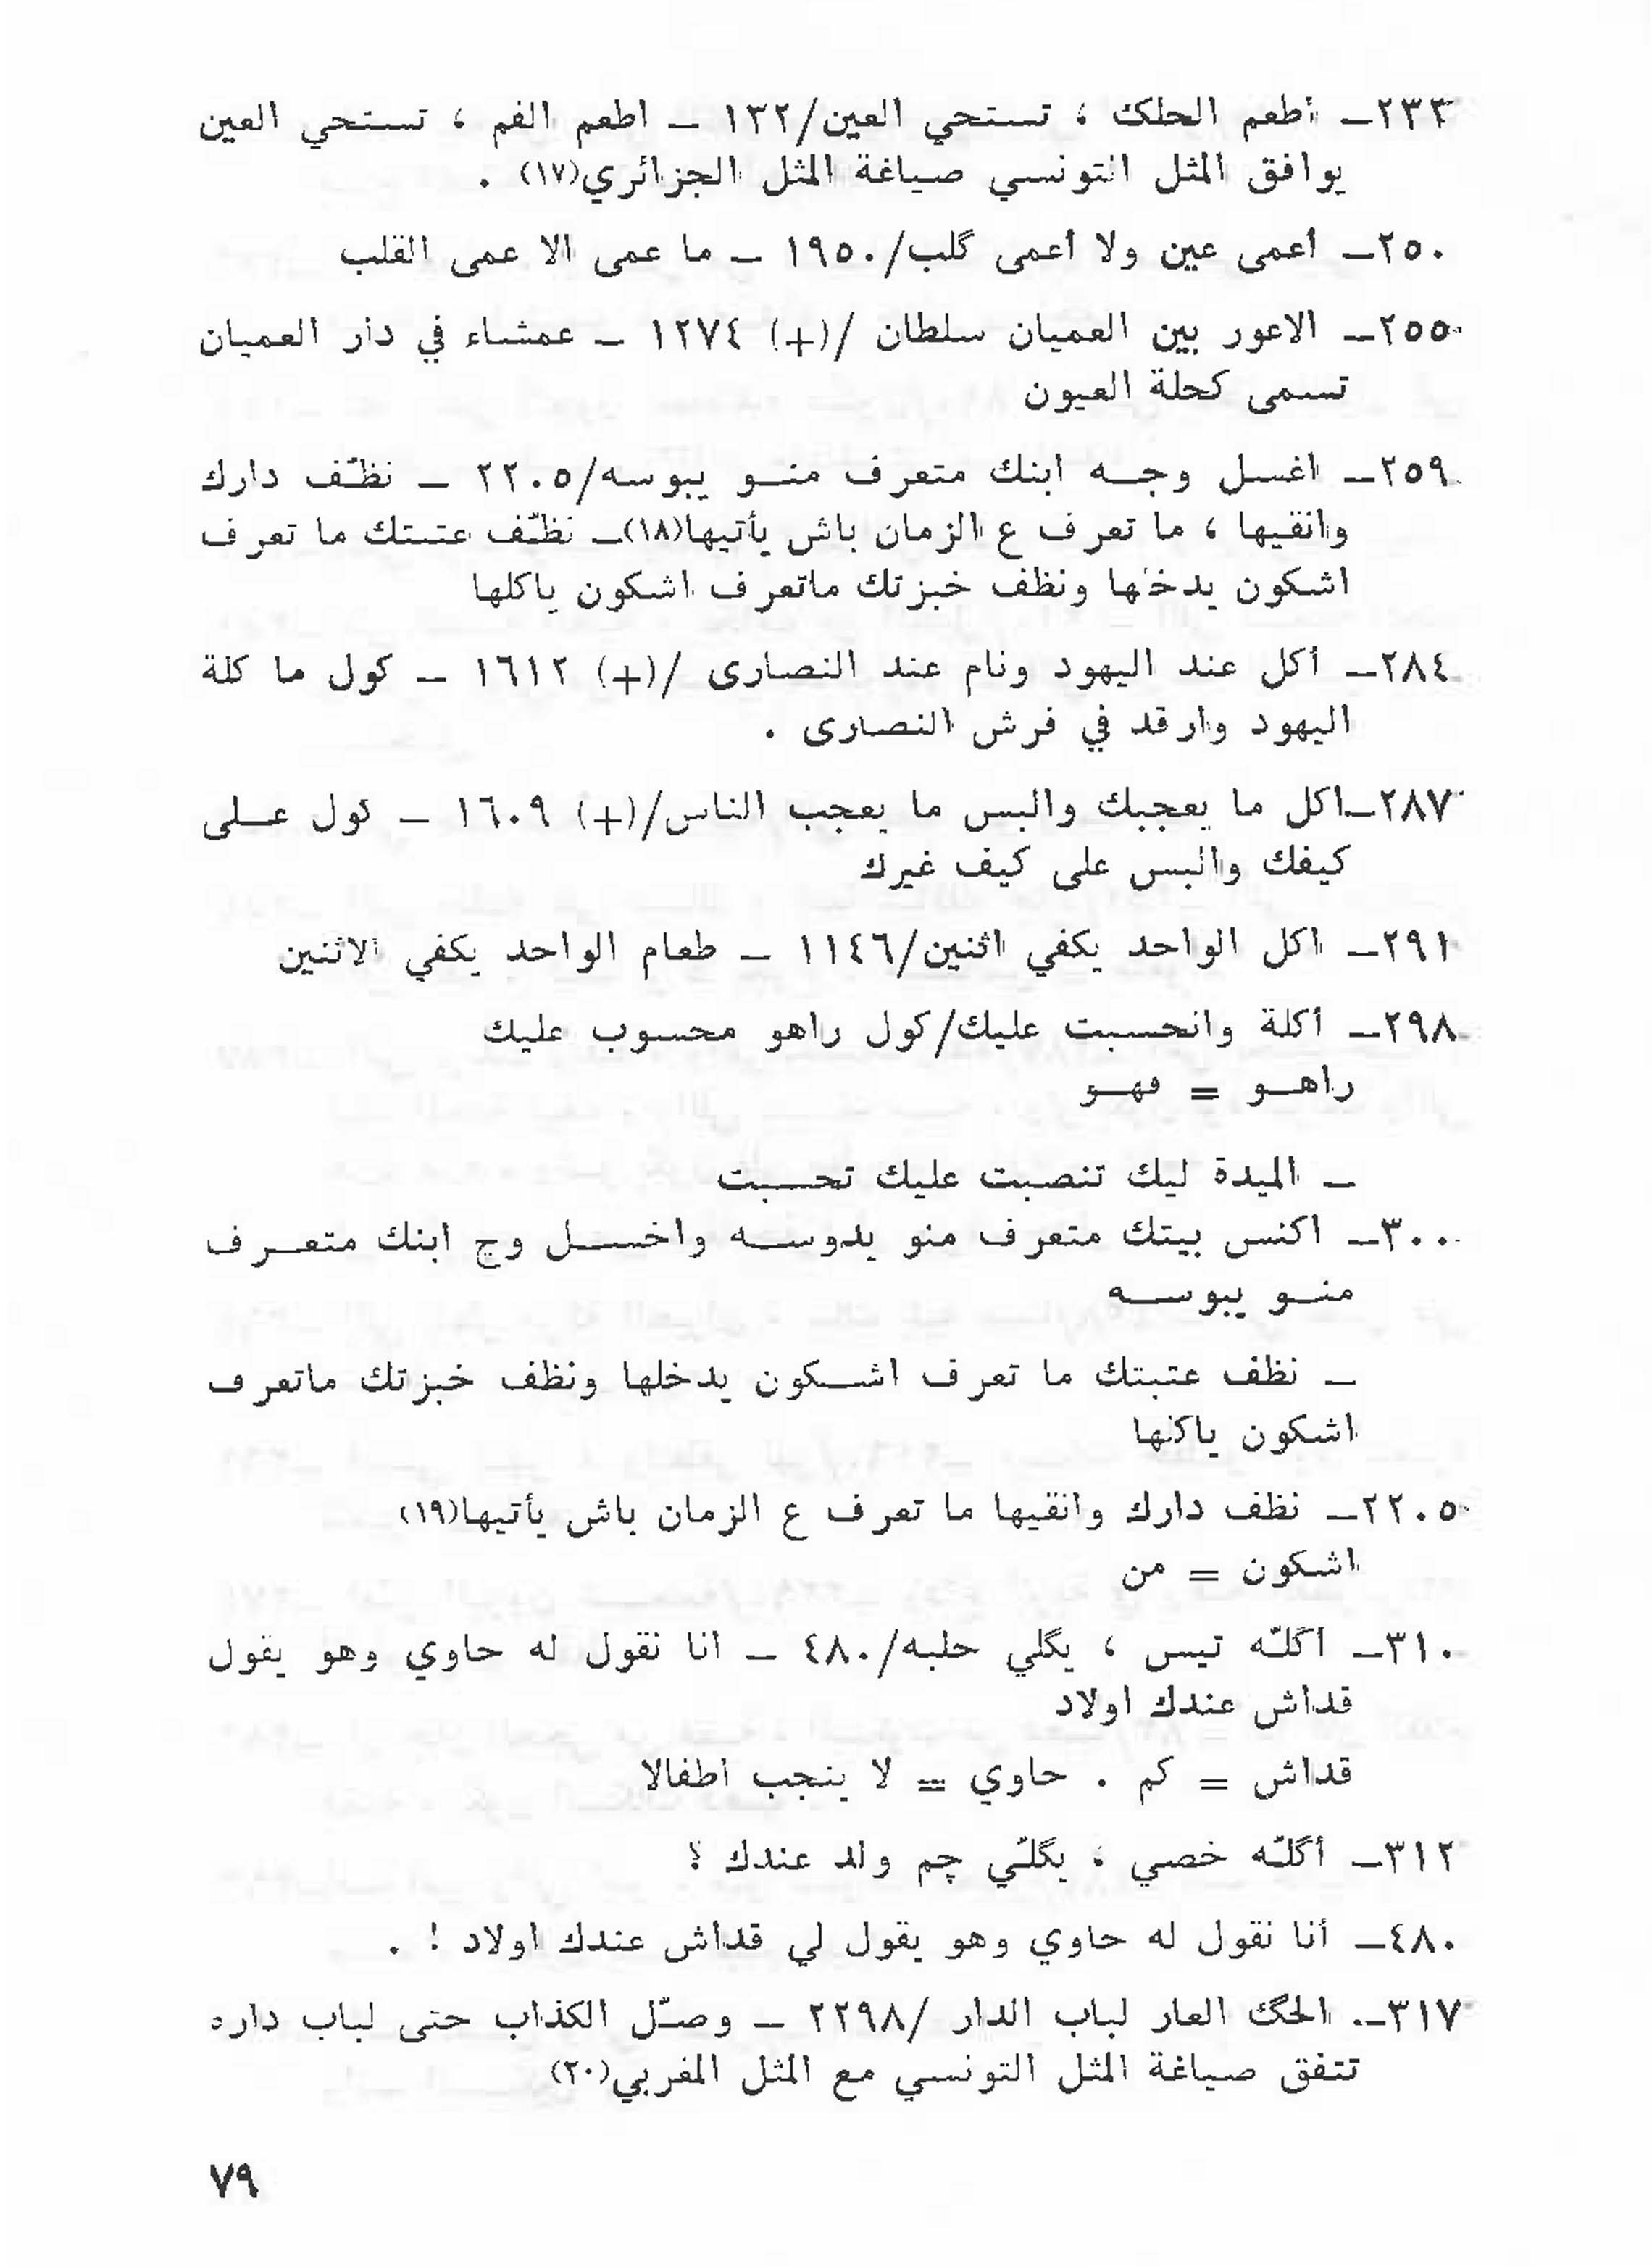 ٢٣٣ـ أطعم الحلك ، تستحي العين/١٣٢ ـ اطعم الفم ، تستحي العين
يوافق المثل التونسي صياغة المثل الجزائري(١٧) .
٢٥٠ـ أعمى عين ولا أعمى گلب/١٩٥٠ ـ ما عمى الا عمى القلب
٢٥٥ـ الاعور بين العميان سلطان /(+) ١٢٧٤ ـ عمشاء في دار العميان
تسمى كحلة العيون
٢٥٩ـ اغسل وجه ابنك متعرف منو يبوسه/٢٢٠٥ ـ نظّف دارك
وانقيها ، ما تعرف ع الزمان باش يأتيها(١٨)ـ نظّف عتبتك ما تعرف
اشكون يدخلها ونظف خبزتك ماتعرف اشكون ياكلها
٢٨٤ـ أكل عند اليهود ونام عند النصارى /(+) ١٦١٢ ـ كول ما كلة
اليهود وارقد في فرش النصارى .
٢٨٧ـاكل ما يعجبك والبس ما يعجب الناس/(+) ١٦٠٩ ـ كول على
كيفك والبس على كيف غيرك
٢٩١ـ اكل الواحد يكفي اثنين/١١٤٦ ـ طعام الواحد يكفي الاثنين
٢٩٨ـ أكلة وانحسبت عليك/كول راهو محسوب عليك
راهو = فهو
ـ الميدة ليك تنصبت عليك تحسبت
٣٠٠ـ اكنس بيتك متعرف منو يدوسه واخسل وج ابنك متعرف
منو يبوسه
ـ نظف عتبتك ما تعرف اشكون يدخلها ونظف خبزتك ماتعرف
اشكون ياكلها
٢٢٠٥ـ نظف دارك وانقيها ما تعرف ع الزمان باش يأتيها(١٩)
اشكون = من
٣١٠ـ اگلّه تيس ، يگلي حلبه/٤٨٠ ـ انا نقول له حاوي وهو يقول
قداش عندك اولاد
قداش = كم . حاوي = لا ينجب اطفالا
٣١٢ـ أگلّه خصي ، يگلّي چم ولد عندك ؟
٤٨٠ـ أنا نقول له حاوي وهو يقول لي قداش عندك اولاد ! .
٣١٧ـ. الحگ العار لباب الدار /٢٢٩٨ ـ وصّل الكذاب حتى لباب داره
تتفق صياغة المثل التونسي مع المثل المغربي(٢٠)
٧٩